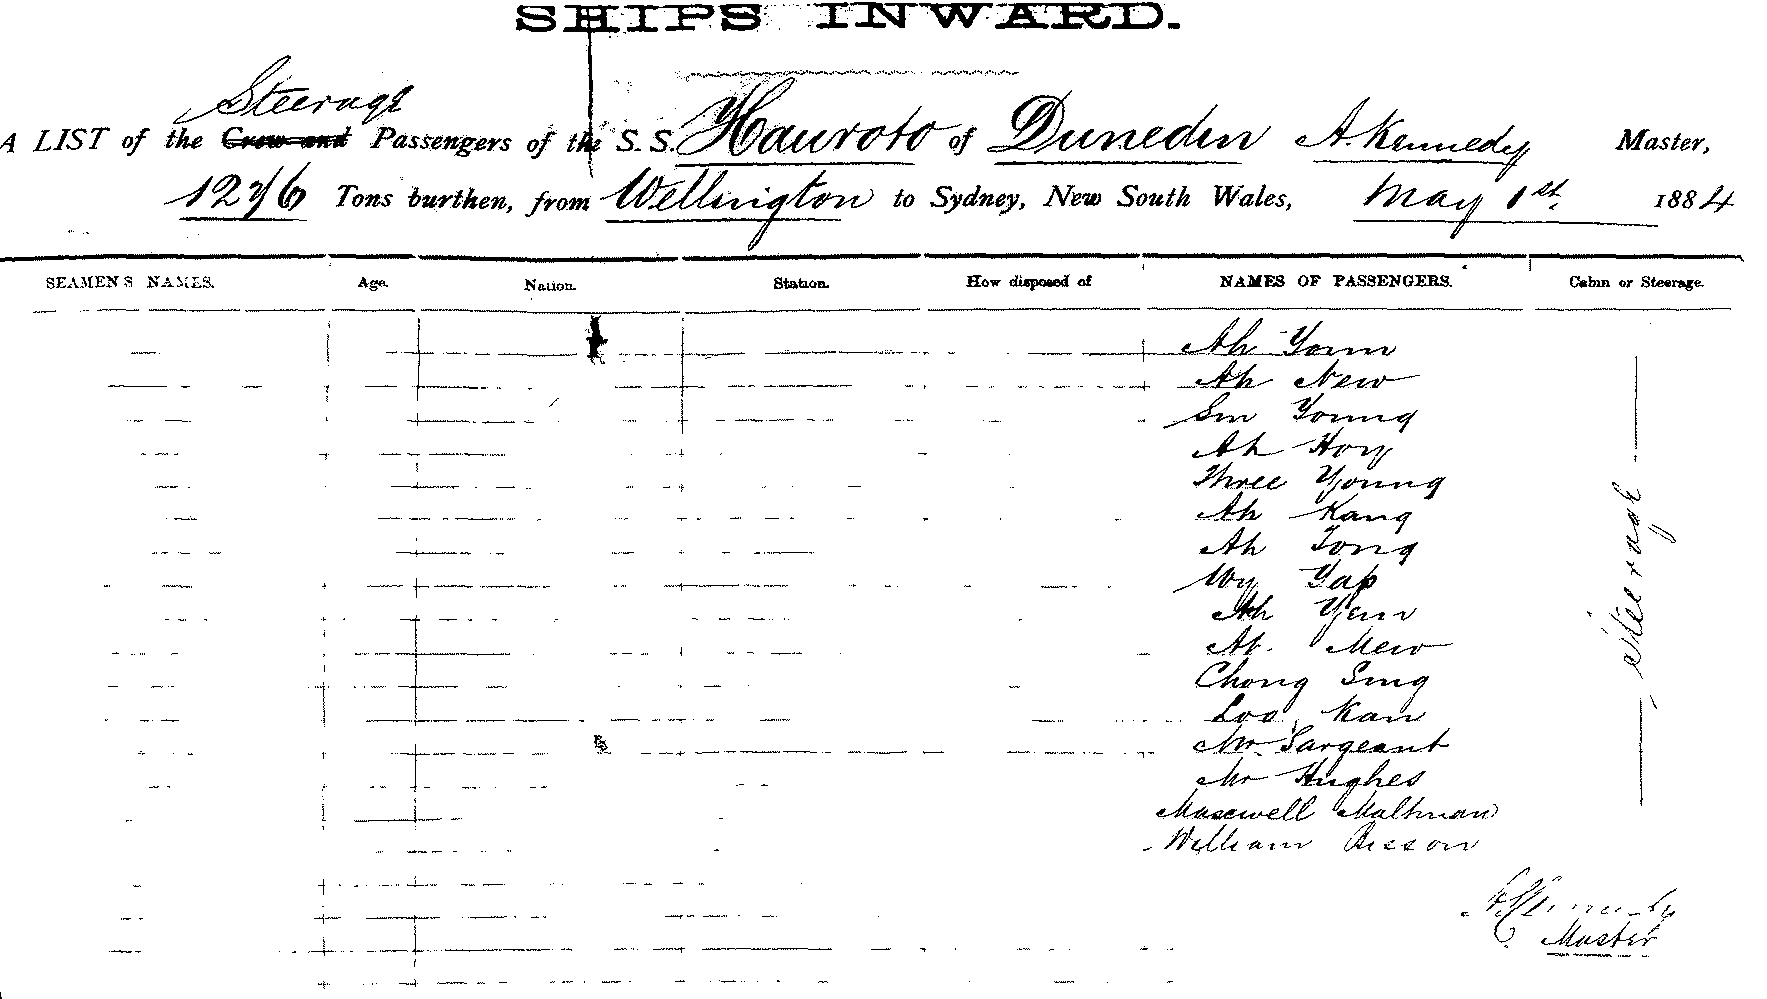 SHIPS INWARD.
Steerage
A LIST of the Crew and Passengers of the S.S. Hauroto of Dunedin A. Kennedy Master,
1276 Tons burthen, from Wellington to Sydney, New South Wales, May 1st. 1884
SEAMEN'S NAMES. Age. Nation. Station. How disposed of NAMES OF PASSENGERS. Cabin or Steerage.
Ah Youn
Ah New
Sin Young
Ah Hoy
Three Young
Ah Kang
Ah Tong
Wy Yap
Ah Yem
Ah Mew
Chong Sing
Loo Kan
Mr. Sargeant
Mr Hughes
Maxwell Maltman
William Bisson
Steerage
A Kennedy
Master